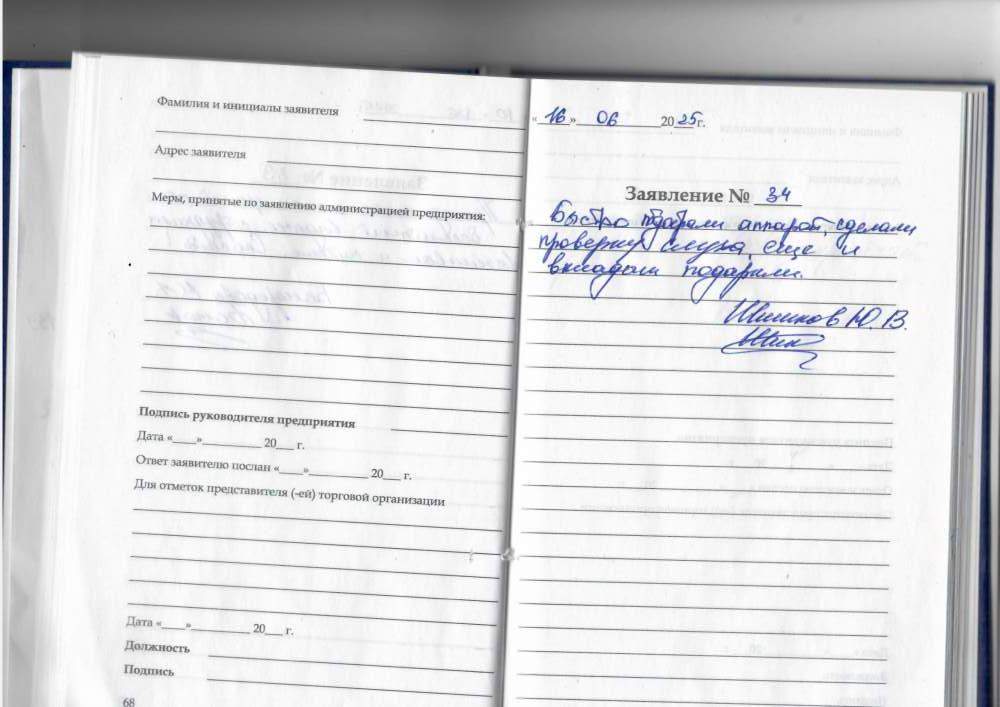 Фамилия и инициалы заявителя
Адрес заявителя
Меры, принятые по заявлению администрацией предприятия:
Подпись руководителя предприятия
Дата «____»__________ 20___ г.
Ответ заявителю послан «____»__________ 20___ г.
Для отметок представителя (-ей) торговой организации
Дата «____»__________ 20___ г.
Должность
Подпись
68
«16» 06 2025г.
Заявление № 34
Быстро подобрали аппарат, сделали
проверку слуха, еще и
вкладыши подарили.
Шишков Ю. В.